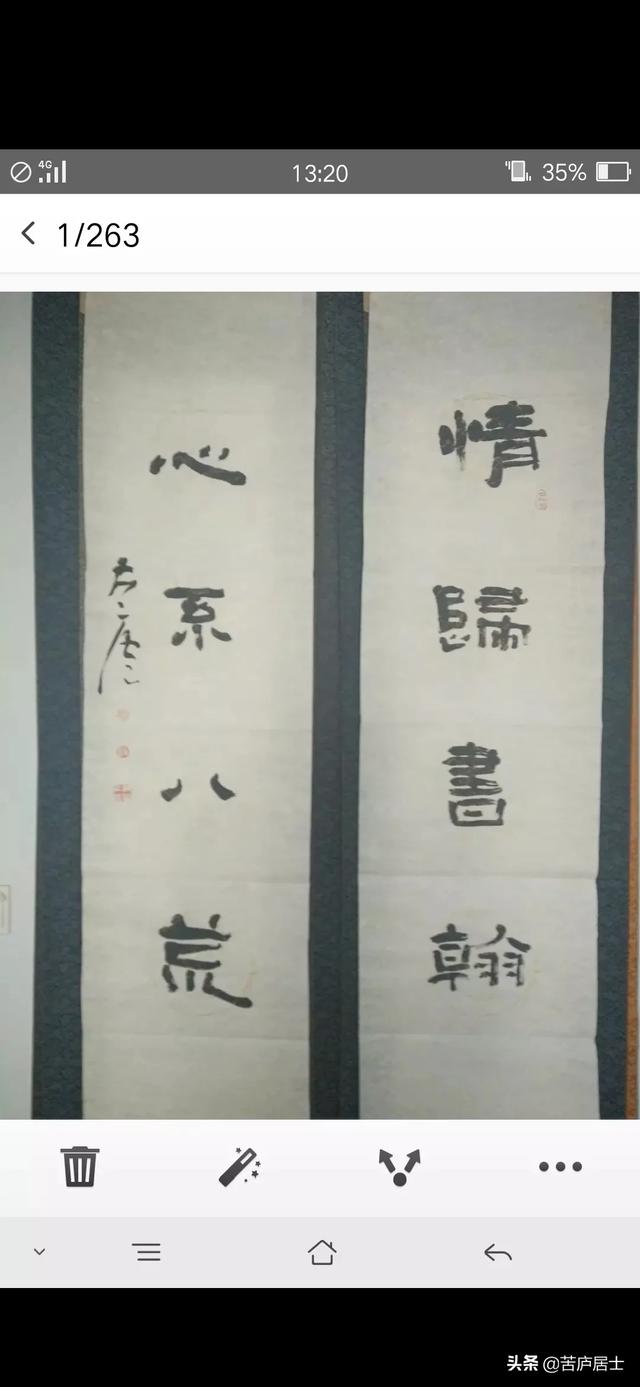 4G 13:20 35%
1/263
情歸書翰
心系八荒
头条 @苦庐居士